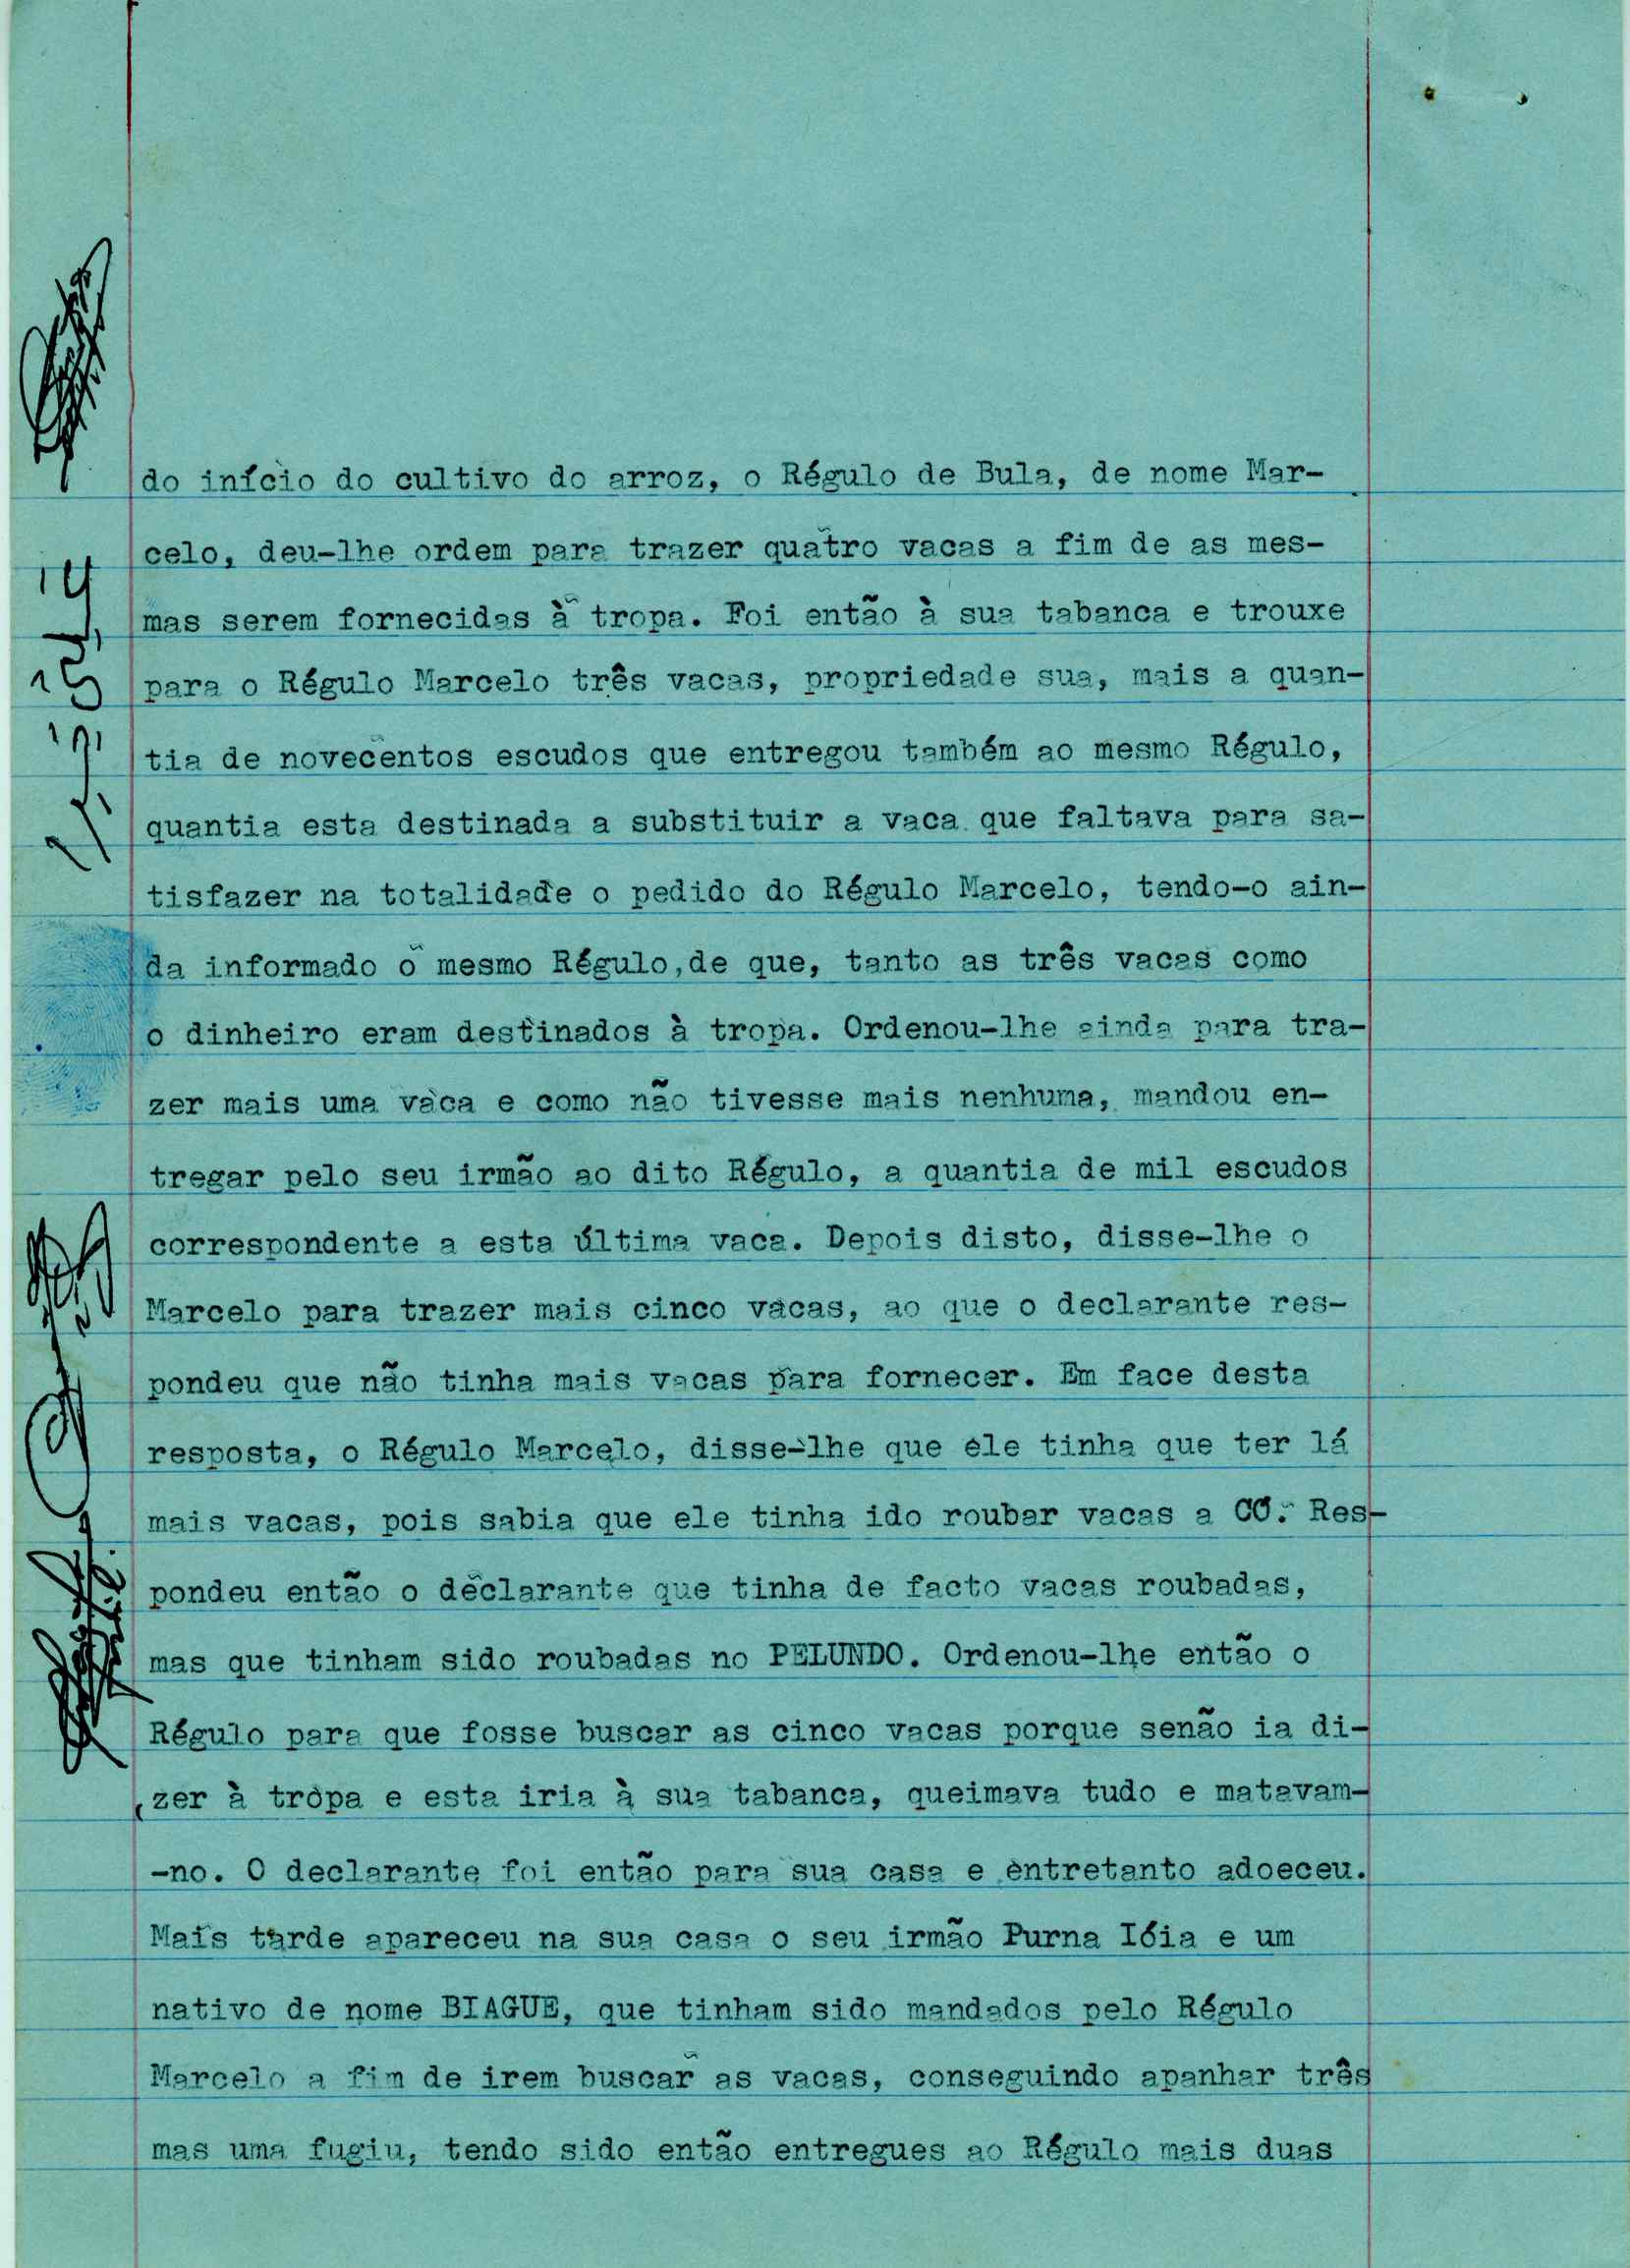 do início do cultivo do arroz, o Régulo de Bula, de nome Mar-
celo, deu-lhe ordem para trazer quatro vacas a fim de as mes-
mas serem fornecidas à tropa. Foi então à sua tabanca e trouxe
para o Régulo Marcelo três vacas, propriedade sua, mais a quan-
tia de novecentos escudos que entregou também ao mesmo Régulo,
quantia esta destinada a substituir a vaca que faltava para sa-
tisfazer na totalidade o pedido do Régulo Marcelo, tendo-o ain-
da informado o mesmo Régulo,de que, tanto as três vacas como
o dinheiro eram destinados à tropa. Ordenou-lhe ainda para tra-
zer mais uma vaca e como não tivesse mais nenhuma, mandou en-
tregar pelo seu irmão ao dito Régulo, a quantia de mil escudos
correspondente a esta última vaca. Depois disto, disse-lhe o
Marcelo para trazer mais cinco vacas, ao que o declarante res-
pondeu que não tinha mais vacas para fornecer. Em face desta
resposta, o Régulo Marcelo, disse-lhe que ele tinha que ter lá
mais vacas, pois sabia que ele tinha ido roubar vacas a CÓ. Res-
pondeu então o declarante que tinha de facto vacas roubadas,
mas que tinham sido roubadas no PELUNDO. Ordenou-lhe então o
Régulo para que fosse buscar as cinco vacas porque senão ia di-
zer à tropa e esta iria à sua tabanca, queimava tudo e matavam-
-no. O declarante foi então para sua casa e entretanto adoeceu.
Mais tarde apareceu na sua casa o seu irmão Purna Ióia e um
nativo de nome BIAGUE, que tinham sido mandados pelo Régulo
Marcelo a fim de irem buscar as vacas, conseguindo apanhar três
mas uma fugiu, tendo sido então entregues ao Régulo mais duas